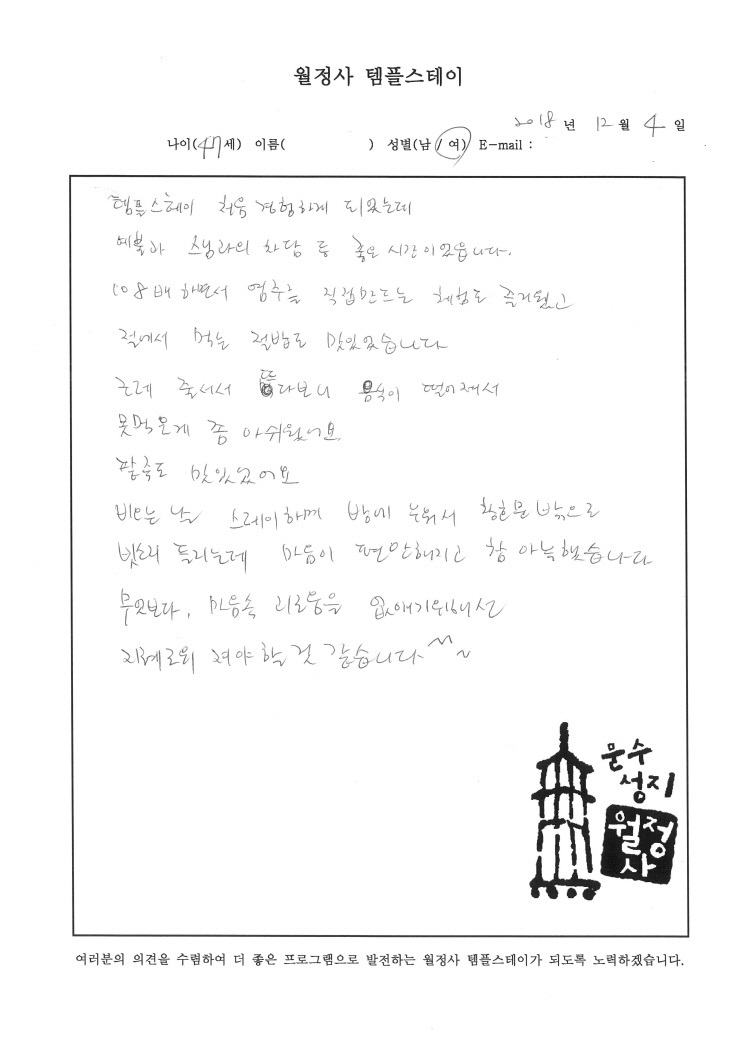 월정사 템플스테이
2018 년 12 월 4 일
나이(47세) 이름( ) 성별(남 / 여) E-mail :
템플스테이 처음 경험하게 되었는데
예불과 스님과의 차담 등 좋은 시간이었읍니다.
108배 하면서 염주를 직접만드는 체험도 즐거웠고
절에서 먹는 절밥도 맛있었습니다
근데 줄서서 뜨다보니 음식이 떨어져서
못먹은게 쫌 아쉬웠어요.
팥죽도 맛있었어요
비오는 날 스테이하며 방에 누워서 창호문 밖으로
빗소리 들리는데 마음이 편안해지고 참 아늑했습니다
무엇보다, 마음속 괴로움을 없애기위해선
지혜로워 져야 할 것 같습니다~~
문수
성지
월정
사
여러분의 의견을 수렴하여 더 좋은 프로그램으로 발전하는 월정사 템플스테이가 되도록 노력하겠습니다.